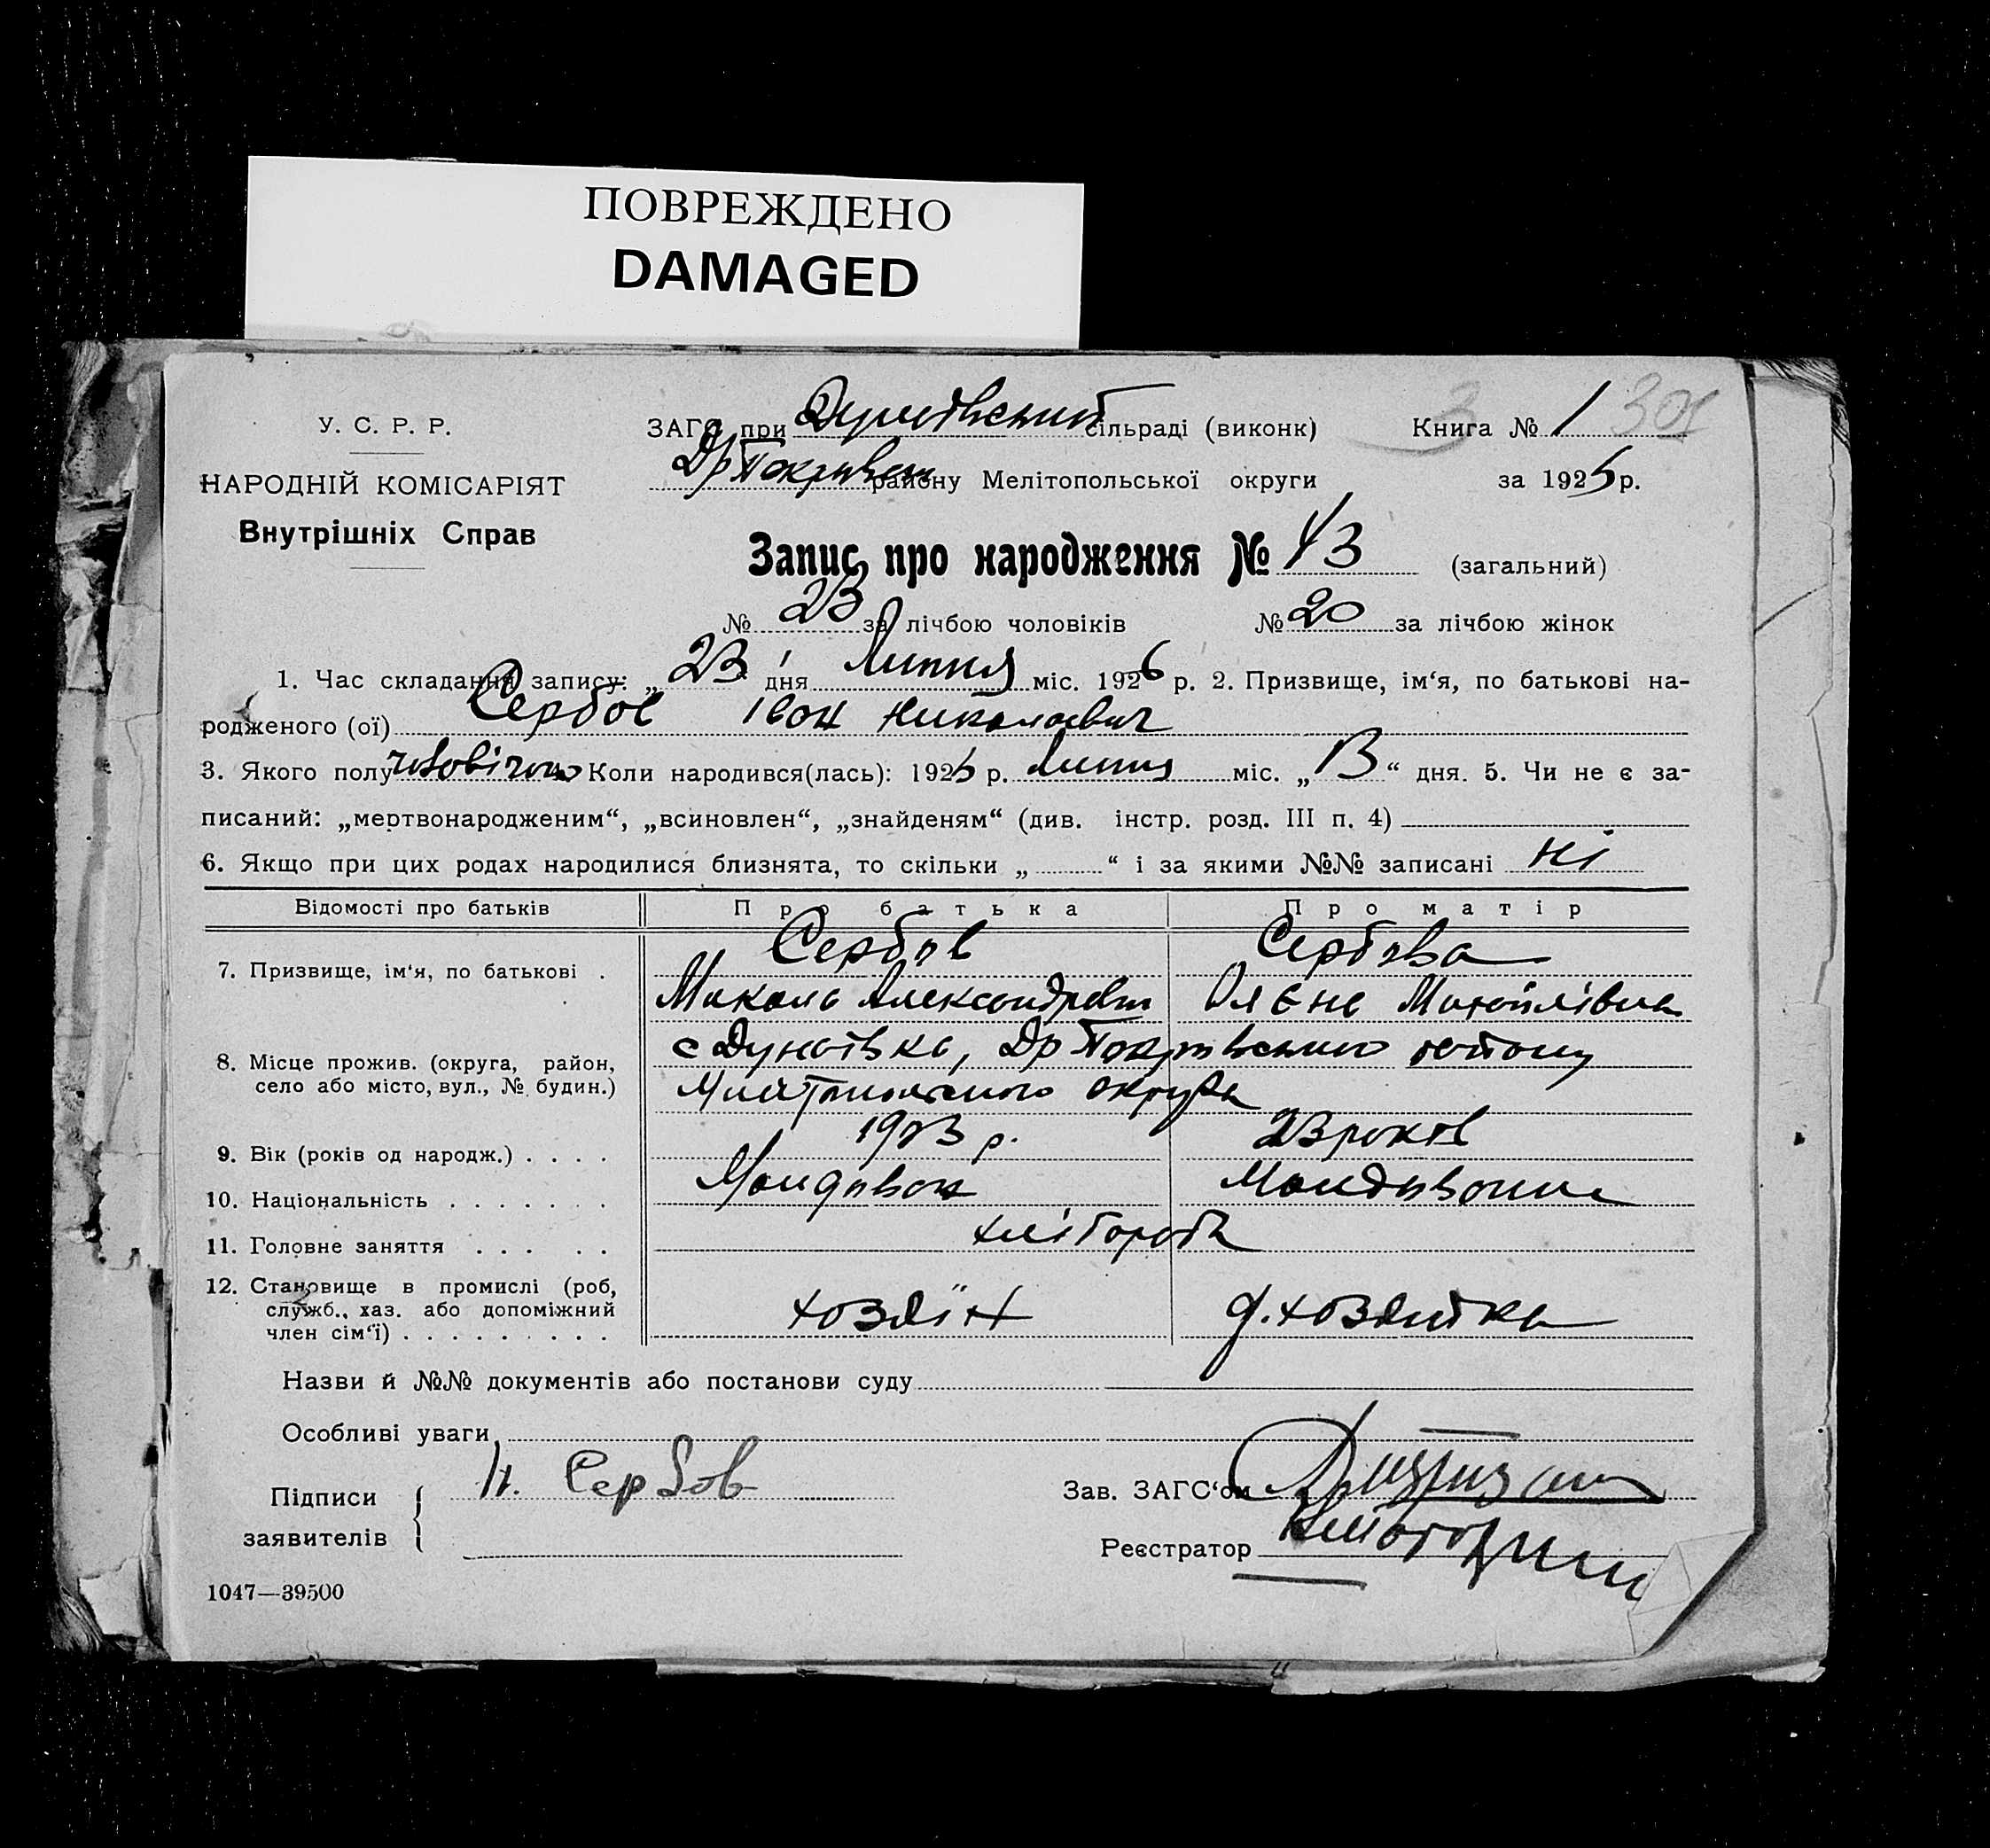 ПОВРЕЖДЕНО
DAMAGED
У. С. Р. Р.
НАРОДНІЙ КОМІСАРІЯТ
Внутрішніх Справ
ЗАГС при сільраді (виконк)
району Мелітопольської округи
Книга № 1 301
3
за 1925 р.
Запис про народження № 43 (загальний)
№ 23 за лічбою чоловіків № 20 за лічбою жінок
1. Час складання запису: „ 23 " дня Липня міс. 1926 р. 2. Призвище, ім‘я, по батькові на-
родженого (ої) Сербов Іван Николаевич
3. Якого полу чоловічого Коли народився(лась): 1925 р. Липня міс. „ 13 “ дня. 5. Чи не є за-
писаний: „мертвонародженим“, „всиновлен“, „знайденям“ (див. інстр. розд. III п. 4)
6. Якщо при цих родах народилися близнята, то скільки „ “ і за якими №№ записані Ні
Відомості про батьків Про батька Про матір
7. Призвище, ім‘я, по батькові . Сербов Сербова
Микола Александрович Олєна
8. Місце прожив. (округа, район, с Дунаївка, Др Покровського району
село або місто, вул., № будин.) округи
9. Вік (років од народж.) . . . . 1903 р. 23 років
10. Національність . . . . . . . Молдован Молдованка
11. Головне заняття . . . . . хлібороби
12. Становище в промислі (роб,
служб., хаз. або допоміжний хозяїн д. хозяйка
член сім‘ї) . . . . . . . . .
Назви й №№ документів або постанови суду
Особливі уваги
Підписи Н. Сербов
заявителів
Зав. ЗАГС‘ом
Реєстратор
1047—39500